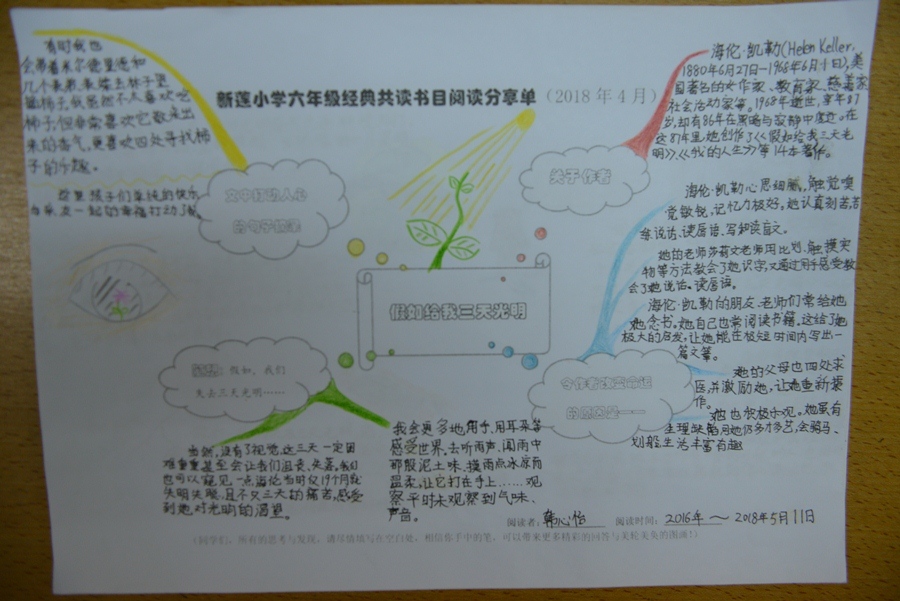 新莲小学六年级经典共读书目阅读分享单(2018年4月)
有时我也
会带着米尔德里德和
几个表弟、表妹去林子里
摘柿子,我虽然不太喜欢吃
柿子,但非常喜欢它散发出
来的香气,更喜欢四处寻找柿
子的乐趣。
这里孩子们单纯的快乐
文中打动人心
的句子摘录
关于作者
海伦·凯勒(Helen Keller,
1880年6月27日—1968年6月1日),美
国著名的女作家、教育家、慈善家
社会活动家等。1968年逝世,享年87
岁,却有86年在黑暗与寂静中度过。在
这87年里,她创作了《假如给我三天光
明》、《我的人生》等14本著作。
假如给我三天光明
海伦·凯勒心思细腻,触觉嗅
觉敏锐,记忆力极好,她认真刻苦,苦
练说话、读唇语、写和读盲文。
她的老师莎莉文老师用比划、触摸实
物等方法教会了她识字,又通过用手感受教
会了她说话、读唇语。
海伦·凯勒的朋友、老师们常给她
她念书,她自己也常阅读书籍。这给了她
极大的启发,让她能在极短时间内写出一
篇文章。
她的父母也四处求
医,并激励她,让她重新振
作。
她也积极乐观。她虽有
生理缺陷但她仍多才多艺,会骑马、
划船,生活丰富有趣
令作者改变命运
的原因是——
联想:假如,我们
失去三天光明……
当然,没有了视觉,这三天一定困
难重重,甚至会让我们沮丧、失落,我们
也可以窥见一点海伦当时仅19个月就
失明失聪,且不只三天的痛苦,感受
到她对光明的渴望。
我会更多地用手、用耳朵等
感受世界,去听雨声、闻雨中
那股泥土味、摸雨点冰凉而
温柔,让它打在手上……观
察平时未观察到气味、
声音。
阅读者:韩心怡 阅读时间:2016年~2018年5月11日
(同学们,所有的思考与发现,请尽情填写在空白处,相信你手中的笔,可以带来更多精彩的回答与美轮美奂的图画!)